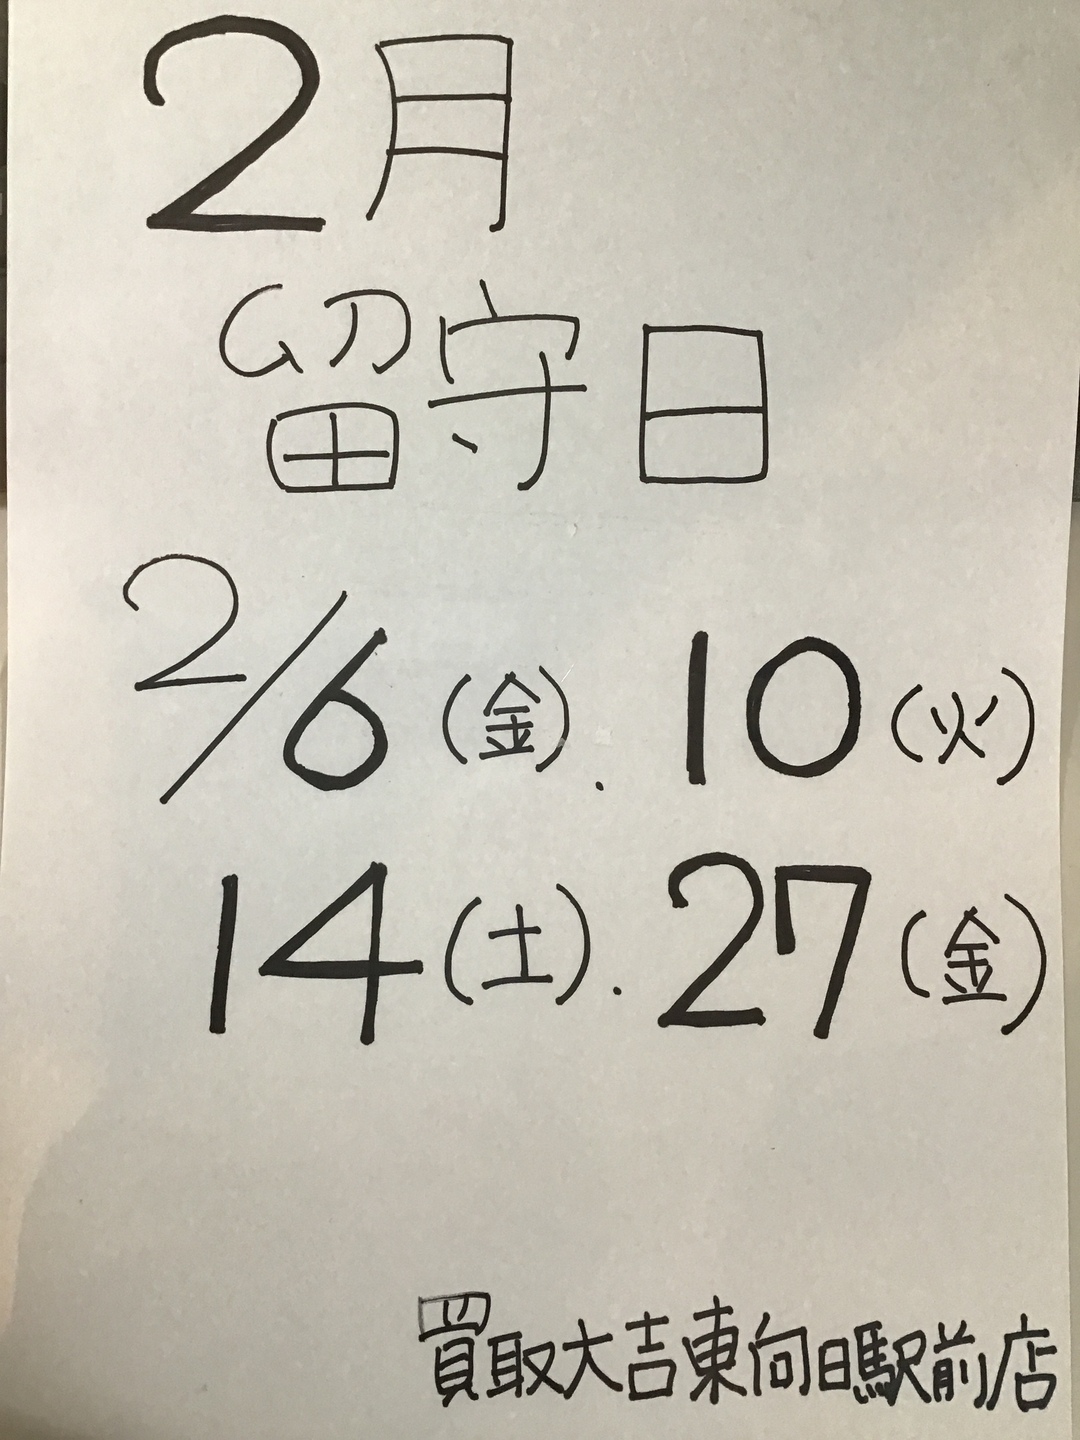 2月
留守日
2/6(金).10(火)
14(土).27(金)
買取大吉東向日駅前店